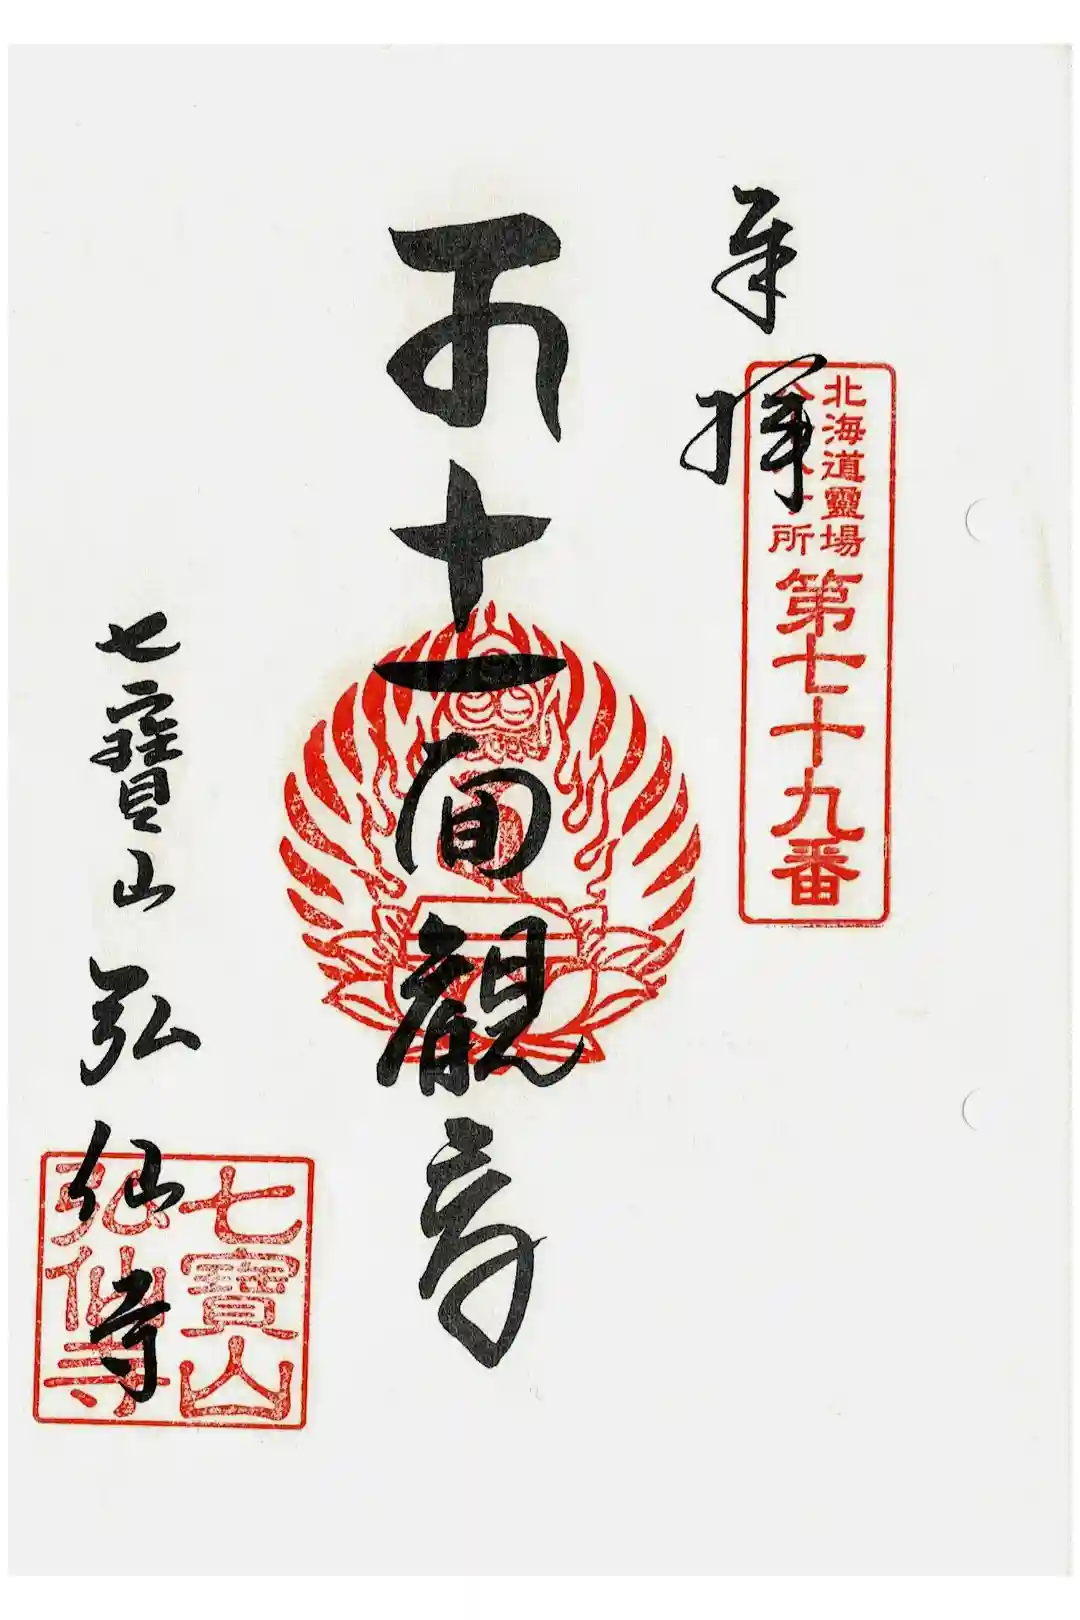 奉拝
北海道靈場
八十八ヶ所
第七十九番
十一面觀音
七寶山 弘仙寺
七寶山
弘仙寺